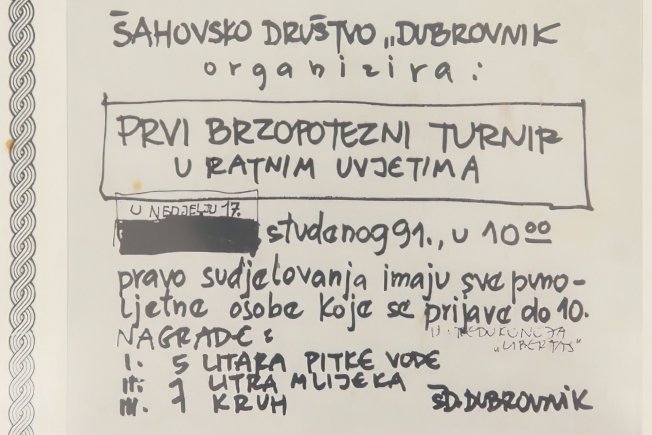 ŠAHOVSKO DRUŠTVO „DUBROVNIK
organizira:
PRVI BRZOPOTEZNI TURNIR
U RATNIM UVJETIMA
U NEDJELJU 17.
studenog 91., u 10 00
pravo sudjelovanja imaju sve puno-
ljetne osobe koje se prijave do 10.
NAGRADE:
"LIBERTAS"
I. 5 LITARA PITKE VODE
II. 1 LITRA MLIJEKA
III. 1 KRUH ŠD. DUBROVNIK